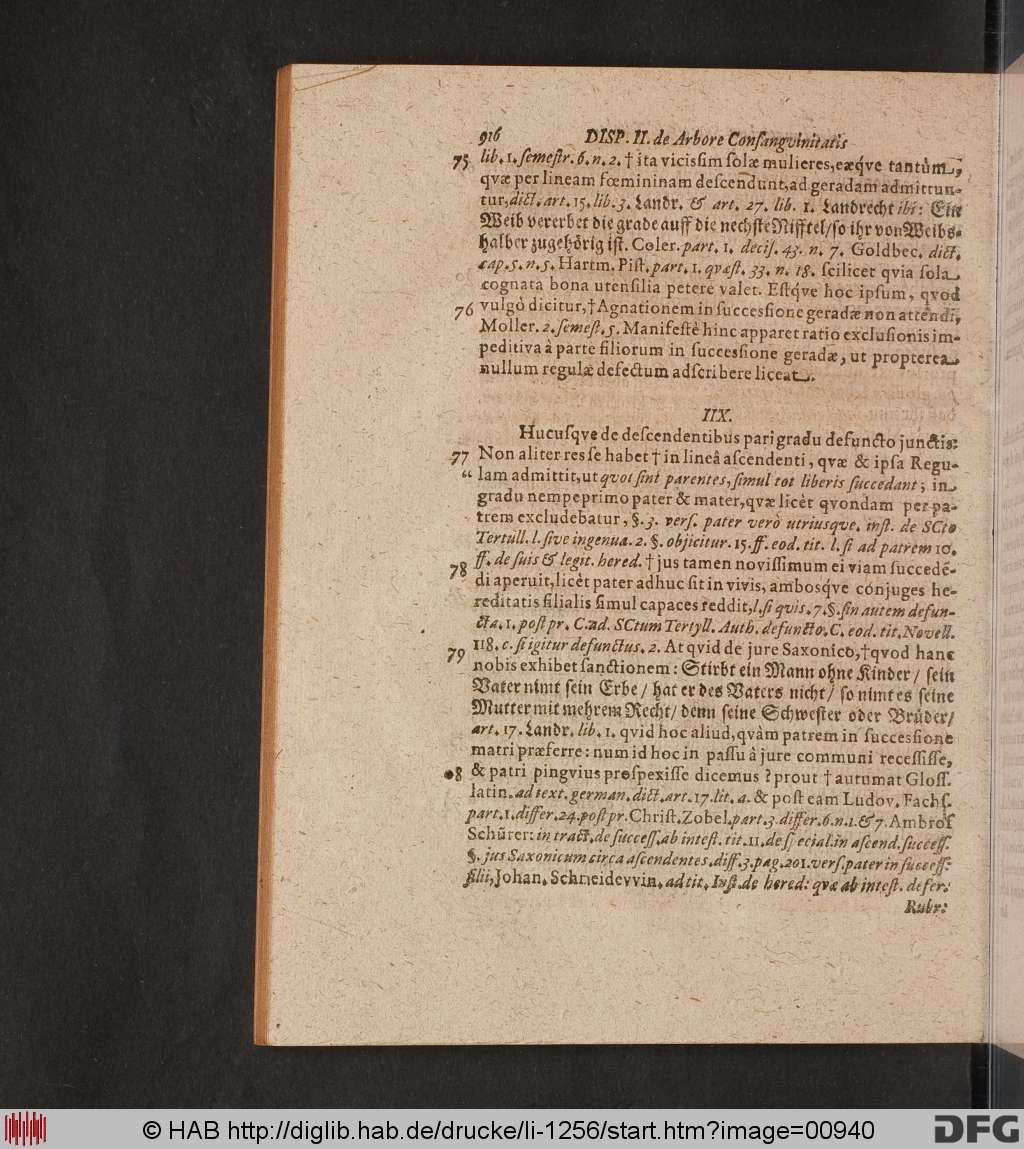 916 DISP. II. de Arbore Consangvinitatis
75 lib. 1. semestr. 6. n. 2. † ita vicissim solæ mulieres, eæq́ve tantùm,
qvæ per lineam fœmininam descendunt, ad geradam admittun-
tur, dict. art. 15. lib. 3. Landr. & art. 27. lib. 1. Landrecht ibi: Ein
Weib vererbet die grade auff die nechste Nifftel/ so ihr von Weibs-
halber zugehörig ist. Coler. part. 1. decis. 43. n. 7. Goldbec. dict.
cap. 5. n. 5. Hartm. Pist. part. 1. qvæst. 33. n. 18. scilicet qvia sola
cognata bona utensilia petere valet. Estq́ve hoc ipsum, qvod
76 vulgò dicitur, † Agnationem in successione geradæ non attendi,
Moller. 2. semest. 5. Manifestè hinc apparet ratio exclusionis im-
peditiva à parte filiorum in successione geradæ, ut propterea
nullum regulæ defectum adscribere liceat.
IIX.
Hucusqve de descendentibus pari gradu defuncto junctis:
77 Non aliter res se habet † in lineâ ascendenti, qvæ & ipsa Regu-
“ lam admittit, ut qvot sint parentes, simul tot liberis succedant; in
gradu nempe primo pater & mater, qvæ licèt qvondam per pa-
trem excludebatur, §. 3. vers. pater verò utriusqve. inst. de SCto
Tertull. l. sive ingenua. 2. §. objicitur. 15. ff. eod. tit. l. si ad patrem 10.
78 ff. de suis & legit. hered. † jus tamen novissimum ei viam succedē-
di aperuit, licèt pater adhuc sit in vivis, ambosq́ve conjuges he-
reditatis filialis simul capaces reddit, l. si qvis. 7. §. sin autem defun-
cta. 1. post pr. C. ad. SCtum Tertyll. Auth. defuncto. C. eod. tit. Novell.
118. c. si igitur defunctus. 2. At qvid de jure Saxonico, † qvod hanc
79 nobis exhibet sanctionem: Stirbt ein Mann ohne Kinder/ sein
Vater nimt sein Erbe/ hat er des Vaters nicht/ so nimt es seine
Mutter mit mehrem Recht/ denn seine Schwester oder Brüder/
art. 17. Landr. lib. 1. qvid hoc aliud, qvàm patrem in successione
matri præferre: num id hoc in passu à jure communi recessisse,
●8 & patri pingvius prospexisse dicemus? prout † autumat Gloss.
latin. ad text. german. dict. art. 17. lit. a. & post eam Ludov. Fachs.
part. 1. differ. 24. post pr. Christ. Zobel. part. 3. differ. 6. n. 1. & 7. Ambros
Schürer: in tract. de success. ab intest. tit. 11. de special. in ascend. success.
§. jus Saxonicum circa ascendentes. diff. 3. pag. 201. vers. pater in success:
filii, Johan. Schneidevvin. ad tit. Inst. de hered: qvæ ab intest. defer:
Rubr:
© HAB http://diglib.hab.de/drucke/li-1256/start.htm?image=00940
DFG